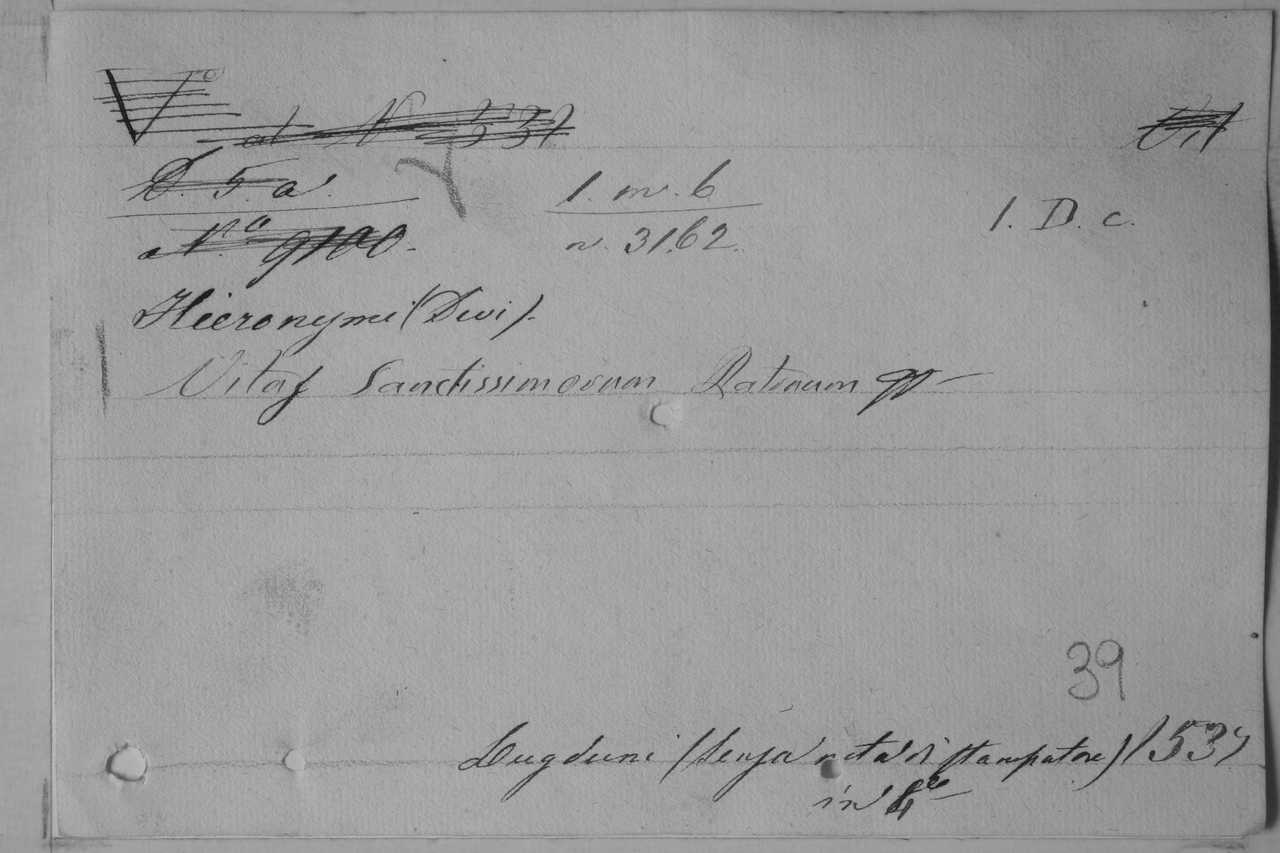 D. 5. a.
1. m. 6
N.º 9100.
n. 3162.
1. D. c.
Hieronymi (Divi).
Vitas Sanctissimorum Patrum
39
Lugduni (senza nota di stampatore) 1537
in 4º